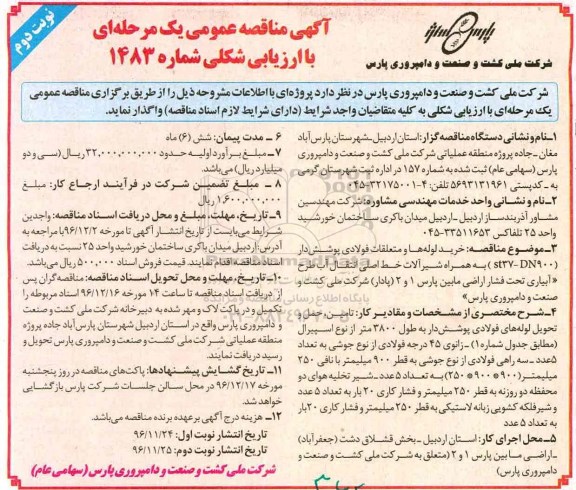 نوبت دوم
آگهی مناقصه عمومی یک مرحله‌ای
با ارزیابی شکلی شماره ۱۴۸۳
شرکت ملی کشت و صنعت و دامپروری پارس
شرکت ملی کشت و صنعت و دامپروری پارس در نظر دارد پروژه‌ای با اطلاعات مشروحه ذیل را از طریق برگزاری مناقصه عمومی
یک مرحله‌ای با ارزیابی شکلی به کلیه متقاضیان واجد شرایط (دارای شرایط لازم اسناد مناقصه) واگذار نماید.
۱-نام و نشانی دستگاه مناقصه گزار: استان اردبیل-شهرستان پارس آباد
مغان - جاده پروژه منطقه عملیاتی شرکت ملی کشت و صنعت و دامپروری
پارس (سهامی عام) ثبت شده به شماره ۱۵۷ در اداره ثبت شهرستان گرمی
به - کدپستی ۵۶۹۳۱۳۱۹۶۱ تلفن: ۴-۳۲۱۷۵۰۰۱-۰۴۵
۲-نام و نشانی واحد خدمات مهندسی مشاوره: شرکت مهندسین
مشاور آذربندساز اردبیل - اردبیل میدان باکری ساختمان خورشید
واحد ۲۵ تلفاکس ۳۳۵۱۱۶۵۳-۰۴۵
۳-موضوع مناقصه: خرید لوله‌ها و متعلقات فولادی پوشش‌دار
(st۳۷-DN۹۰۰) به همراه شیرآلات خط اصلی انتقال آب طرح
« آبیاری تحت فشار اراضی مابین پارس ۱ و ۲ (پادار) شرکت ملی کشت و
صنعت و دامپروری پارس»
۴-شرح مختصری از مشخصات و مقادیر کار: تامین، حمل و
تحویل لوله‌های فولادی پوشش‌دار به طول ۳۸۰۰ متر از نوع اسپیرال
(مطابق جدول شماره ۱) - زانوی ۴۵ درجه فولادی از نوع جوشی به تعداد
۵عدد - سه راهی فولادی از نوع جوشی به قطر ۹۰۰ میلیمتر با نافی ۲۵۰
میلیمتر (۹۰۰*۹۰۰*۲۵۰) به تعداد ۵ عدد - شیر تخلیه هوای دو
محفظه دو روزنه به قطر ۲۵۰ میلیمتر و فشار کاری ۲۰ بار به تعداد ۵ عدد
و شیرفلکه کشویی زبانه لاستیکی به قطر ۲۵۰ میلیمتر و فشار کاری ۲۰بار
به تعداد ۵ عدد
۵-محل اجرای کار: استان اردبیل - بخش قشلاق دشت (جعفرآباد)
-اراضی ما بین پارس ۱ و ۲ (متعلق به شرکت ملی کشت و صنعت و
دامپروری پارس)
۶ - مدت پیمان: شش (۶) ماه
۷-مبلغ برآورد اولیه حدود ۳۲,۰۰۰,۰۰۰,۰۰۰ ریال (سی و دو
میلیارد ریال) می‌باشد.
۸ - مبلغ تضمین شرکت در فرآیند ارجاع کار: مبلغ
۱,۶۰۰,۰۰۰,۰۰۰ ریال
۹-تاریخ، مهلت، مبلغ و محل دریافت اسناد مناقصه: واجدین
شرایط می‌بایست از تاریخ انتشار آگهی تا مورخه ۹۶/۱۲/۲ با مراجعه به
آدرس: اردبیل میدان باکری ساختمان خورشید واحد ۲۵ نسبت به دریافت
اسناد مناقصه اقدام نمایند. قیمت فروش اسناد ۵۰۰,۰۰۰ ریال می‌باشد.
۱۰-تاریخ، مهلت و محل تحویل اسناد مناقصه: مناقصه گران پس
از دریافت اسناد مناقصه تا ساعت ۱۴ مورخه ۹۶/۱۲/۱۶ اسناد مربوطه را
تکمیل و در پاکت لاک و مهر شده به دبیرخانه شرکت ملی کشت و صنعت
و دامپروری پارس واقع در استان اردبیل شهرستان پارس آباد جاده پروژه
منطقه عملیاتی شرکت ملی کشت و صنعت و دامپروری پارس تحویل و
رسید دریافت نمایند.
۱۱-تاریخ گشایش پیشنهادها: پاکت‌های مناقصه در روز پنجشنبه
مورخه ۹۶/۱۲/۱۷ در محل سالن جلسات شرکت پارس بازگشایی
خواهد شد.
۱۲- هزینه درج آگهی برعهده برنده مناقصه می‌باشد.
تاریخ انتشار نوبت اول: ۹۶/۱۱/۲۴
تاریخ انتشار نوبت دوم: ۹۶/۱۱/۲۵
شرکت ملی کشت و صنعت و دامپروری پارس (سهامی عام)